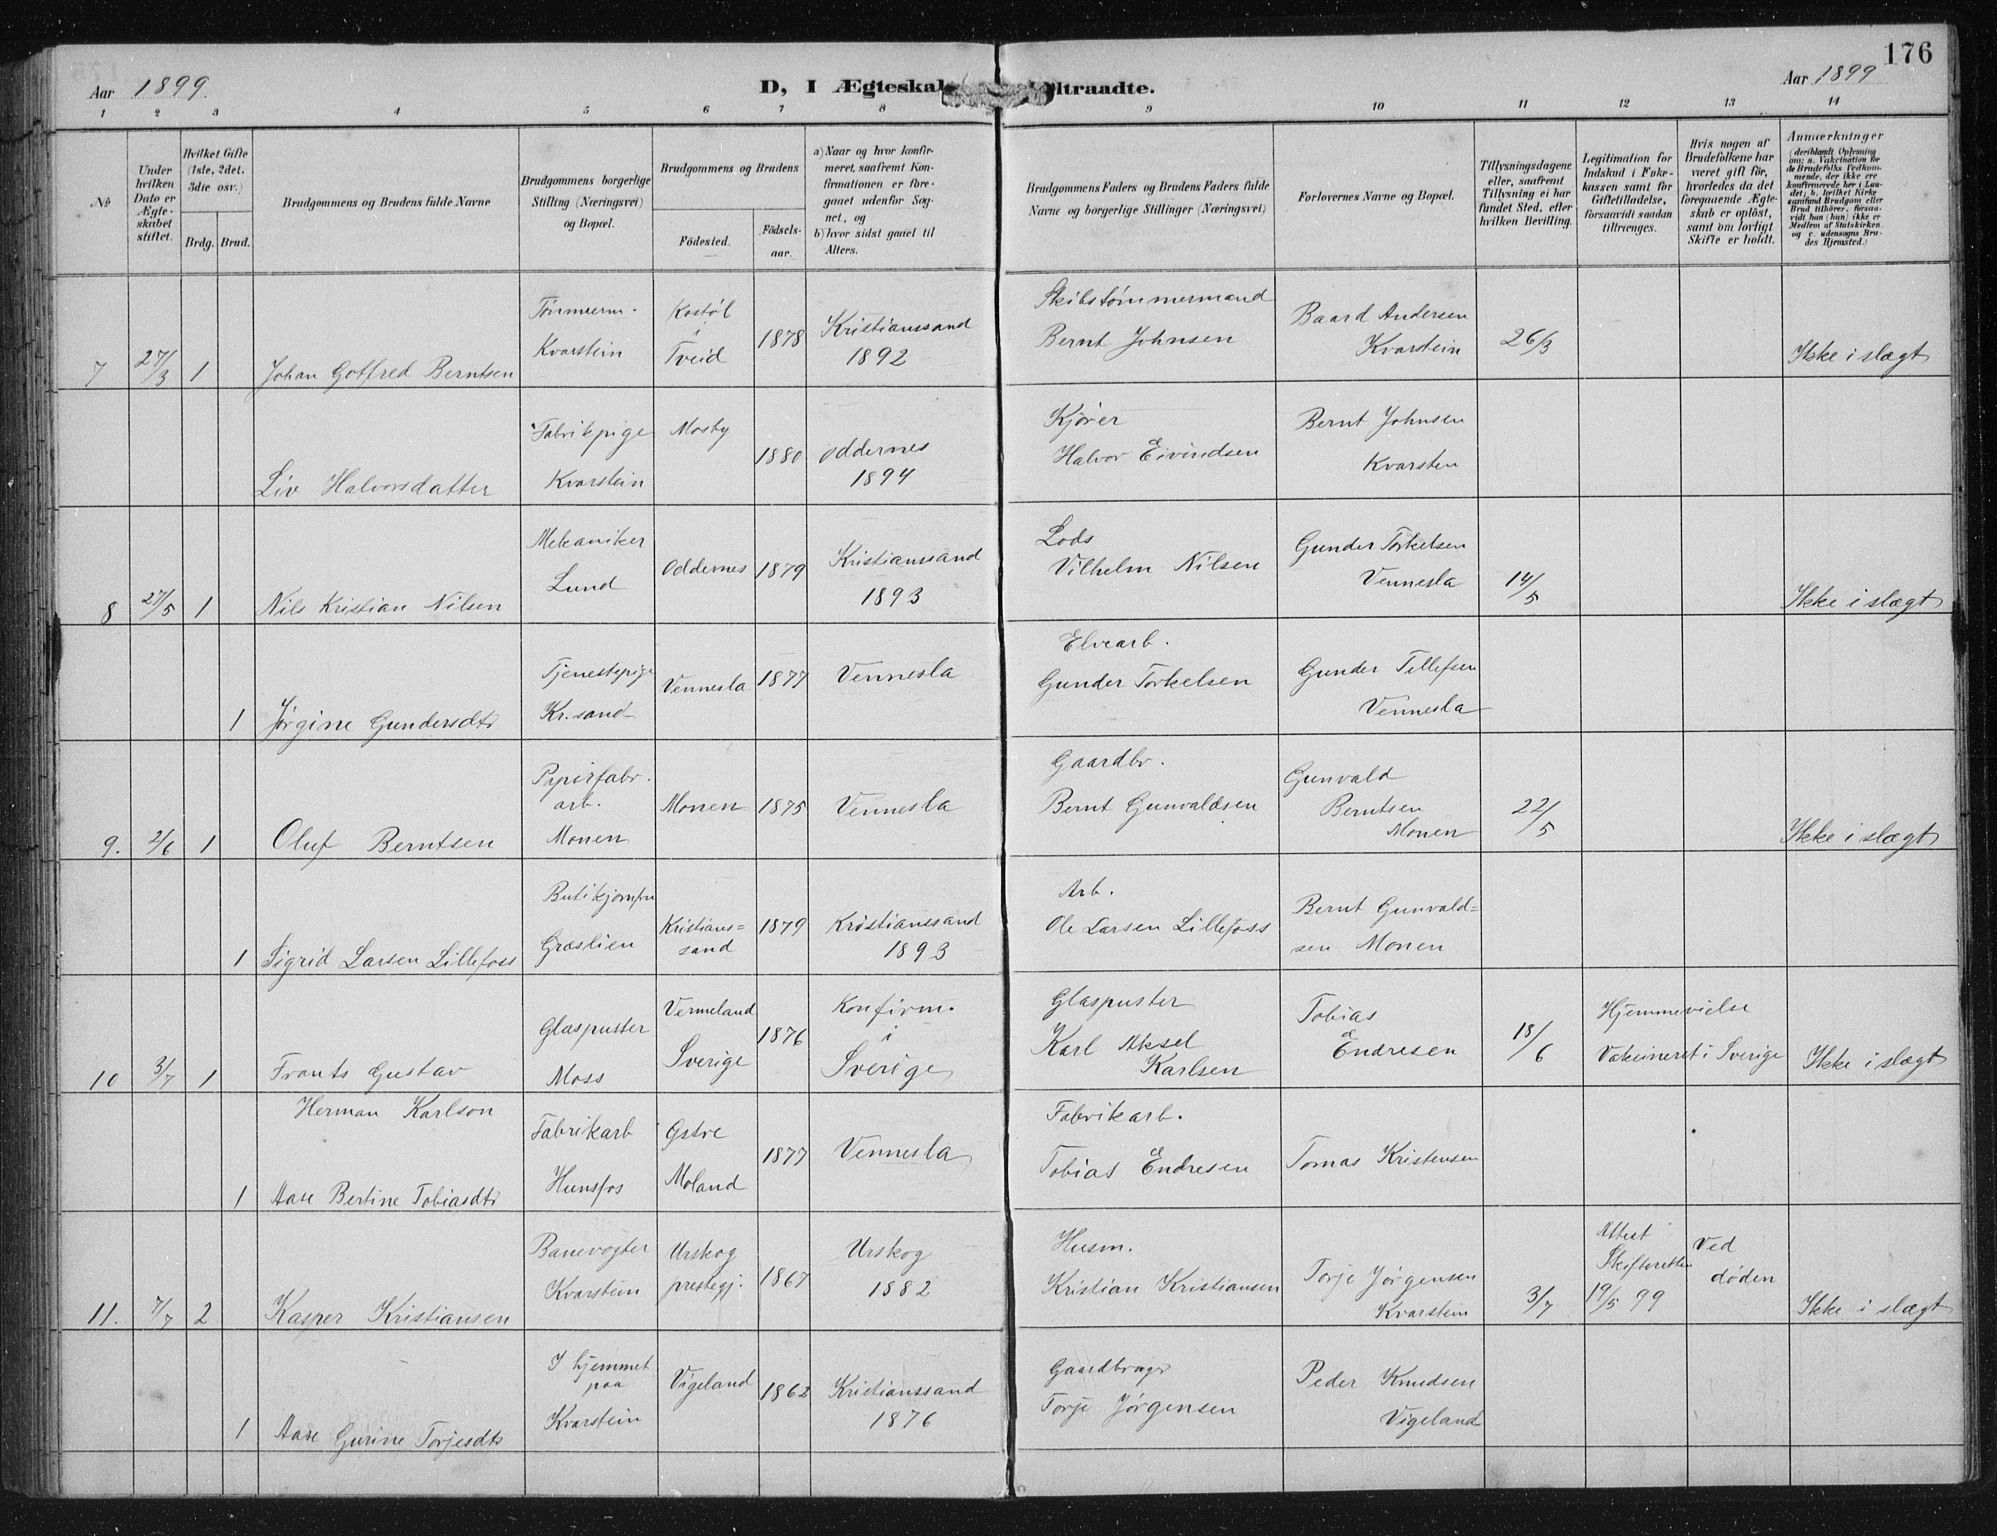 176
Aar 1899.
D, I Ægteskab
ltraadte.
Aar 1899
1 2 3 4 5 6 7 8 9 10 11 12 13 14
No
Under hvilken Dato er Ægteskabet stiftet.
Hvilket Gifte (1ste, 2det, 3die osv.)
Brdg. Brud.
Brudgommens og Brudens fulde Navne
Brudgommens borgerlige Stilling (Næringsvei) og Bopæl.
Brudgommens og Brudens
Födested.
Födselsaar.
a) Naar og hvor konfirmeret, saafremt Konfirmationen er foregaaet udenfor Sognet, og
b) hvor sidst gaaet til Alters.
Brudgommens Faders og Brudens Faders fulde Navne og borgerlige Stillinger (Næringsvei)
Forlovernes Navne og Bopæl.
Tillysningsdagene eller, saafremt Tillysning ei har fundet Sted, efter hvilken Bevilling.
Legitimation for Indskud i Enkekassen samt for Giftetilladelse, forsaavidt saadan tiltrænges.
Hvis nogen af Brudefolkene har været gift för, hvorledes da det foregaaende Ægteskab er oplöst, samt om lovligt Skifte er holdt.
Anmærkninger
(deriblandt Oplysning om: a. Vakcination for de Brudefolks Vedkommende, der ikke ere konfirmerede her i Landet; b. hvilket Kirkesamfund Brudgom eller Brud tilhörer, forsaavidt han (hun) ikke er Medlem af Statskirken, og c. udensogns Brudes Hjemsted.)
7 27/3 1 Johan Gotfred Berntsen
Tömmerm. Kvarstein
Kostöl i Tveid
1878
Kristianssand 1892
Skibstömmermand Bernt Johnsen
Baard Andersen Kvarstein
26/3
Ikke i slægt
Liv Halvorsdatter
Fabrikpige Kvarstein
Mosby
1880
Oddernes 1894
Kjörer Halvor Eivindsen
Bernt Johnsen Kvarsten
8 27/5 1 Nils Kristian Nilsen
Mekaniker Lund
Oddernes
1879
Kristianssand 1893
Lods Vilhelm Nilsen
Gunder Torkelsen Vennesla
14/5
Ikke i slægt
1 Jörgine Gundersdtr
Tjenestepige Kr.sand
Vennesla
1877
Vennesla
Elvearb. Gunder Torkelsen
Gunder Tellefsen Vennesla
9. 2/6 1 Oluf Berntsen
Papirfabr. arb. Monen
Monen
1875
Vennesla
Gaardbr. Bernt Gunvaldsen
Gunvald Berntsen Monen
22/5
Ikke i slægt
1 Sigrid Larsen Lillefoss
Butikjomfru Græslien
Kristianssand
1879
Kristianssand 1893
Arb. Ole Larsen Lillefoss
Bernt Gunvaldsen Monen
10 3/7 1 Frants Gustav Herman Karlson
Glaspuster Moss
Vermeland Sverige
1876
Konfirm. i Sverige
Glaspuster Karl Aksel Karlsen
Tobias Endresen
18/6
Hjemmevielse Vakcineret i Sverige
Ikke i slægt
1 Aase Bertine Tobiasdtr
Fabrikarb Hunsfos
Östre Moland
1877
Vennesla
Fabrikarb. Tobias Endresen
Tomas Kristensen
11. 7/7 2 Kasper Kristiansen
Banevogter Kvarstein
Urskog prestegj.
1867
Urskog 1882
Husm. Kristian Kristiansen
Torje Jörgensen Kvarstein
3/7
Attest Skifteretten 19/5 99
Ved döden
Ikke i slægt
1 Aase Gurine Torjesdtr
I hjemmet paa Kvarstein
Vigeland
1862
Kristianssand 1876
Gaardbruger Torje Jörgensen
Peder Knudsen Vigeland